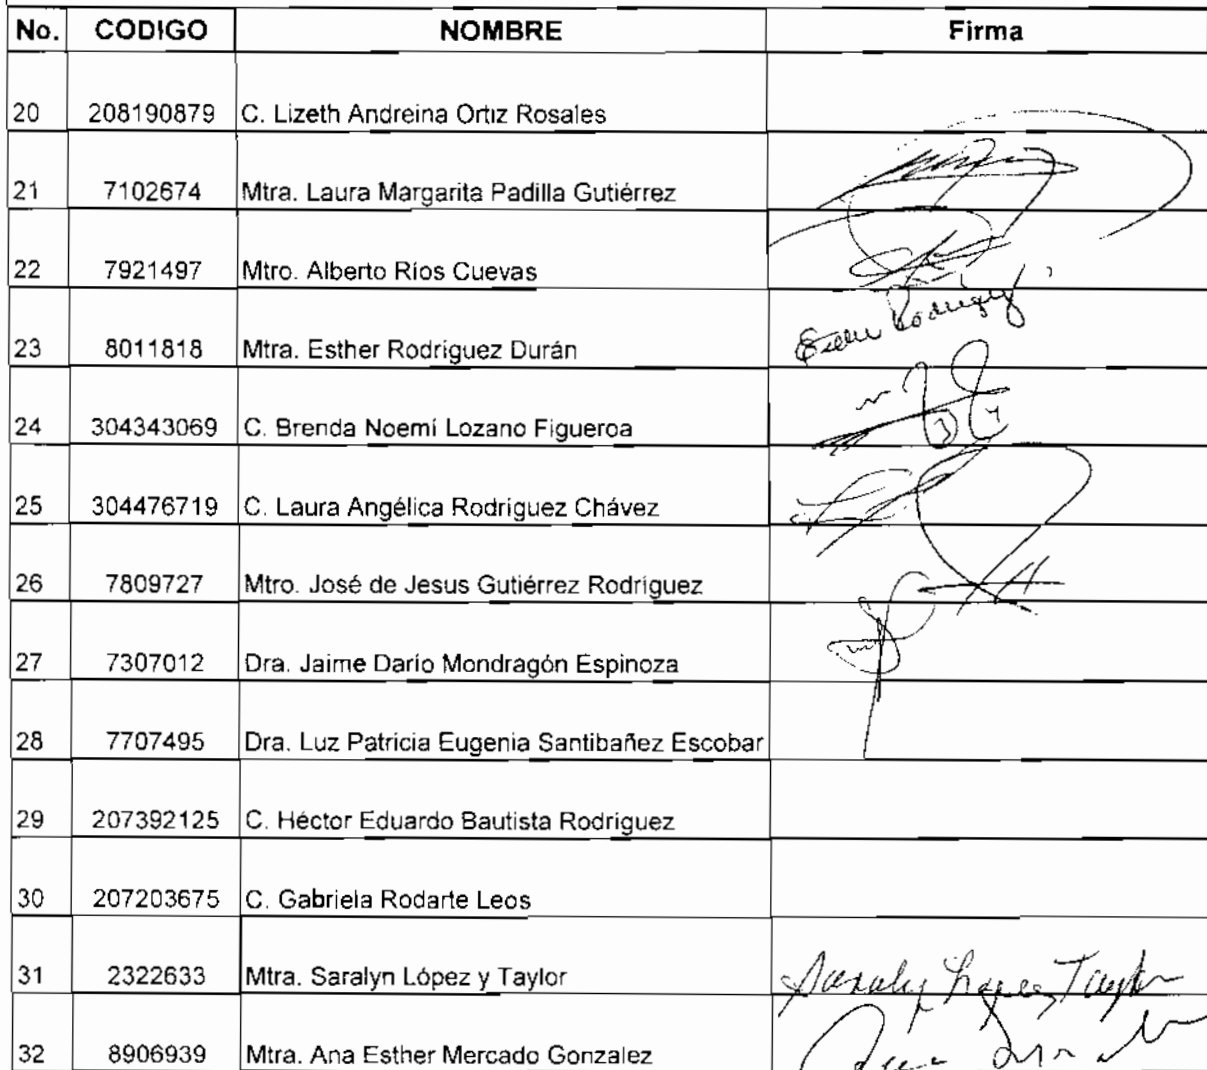 No. CODIGO NOMBRE Firma
20 208190879 C. Lizeth Andreina Ortiz Rosales
21 7102674 Mtra. Laura Margarita Padilla Gutiérrez
22 7921497 Mtro. Alberto Ríos Cuevas
23 8011818 Mtra. Esther Rodríguez Durán Esther Rodríguez
24 304343069 C. Brenda Noemí Lozano Figueroa
25 304476719 C. Laura Angélica Rodríguez Chávez
26 7809727 Mtro. José de Jesus Gutiérrez Rodríguez
27 7307012 Dra. Jaime Darío Mondragón Espinoza
28 7707495 Dra. Luz Patricia Eugenia Santibañez Escobar
29 207392125 C. Héctor Eduardo Bautista Rodríguez
30 207203675 C. Gabriela Rodarte Leos
31 2322633 Mtra. Saralyn López y Taylor Saralyn López Taylor
32 8906939 Mtra. Ana Esther Mercado Gonzalez